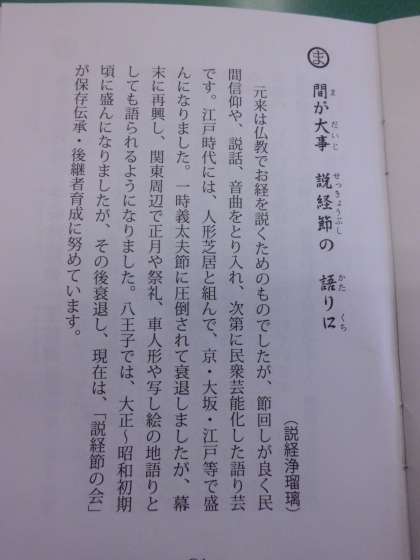 ま 間が大事 説経節の 語り口
（説経浄瑠璃）
元来は仏教でお経を説くためのものでしたが、節回しが良く民
間信仰や、説話、音曲をとり入れ、次第に民衆芸能化した語り芸
です。江戸時代には、人形芝居と組んで、京・大坂・江戸等で盛
んになりました。一時義太夫節に圧倒されて衰退しましたが、幕
末に再興し、関東周辺で正月や祭礼、車人形や写し絵の地語りと
しても語られるようになりました。八王子では、大正～昭和初期
頃に盛んになりましたが、その後衰退し、現在は、「説経節の会」
が保存伝承・後継者育成に努めています。